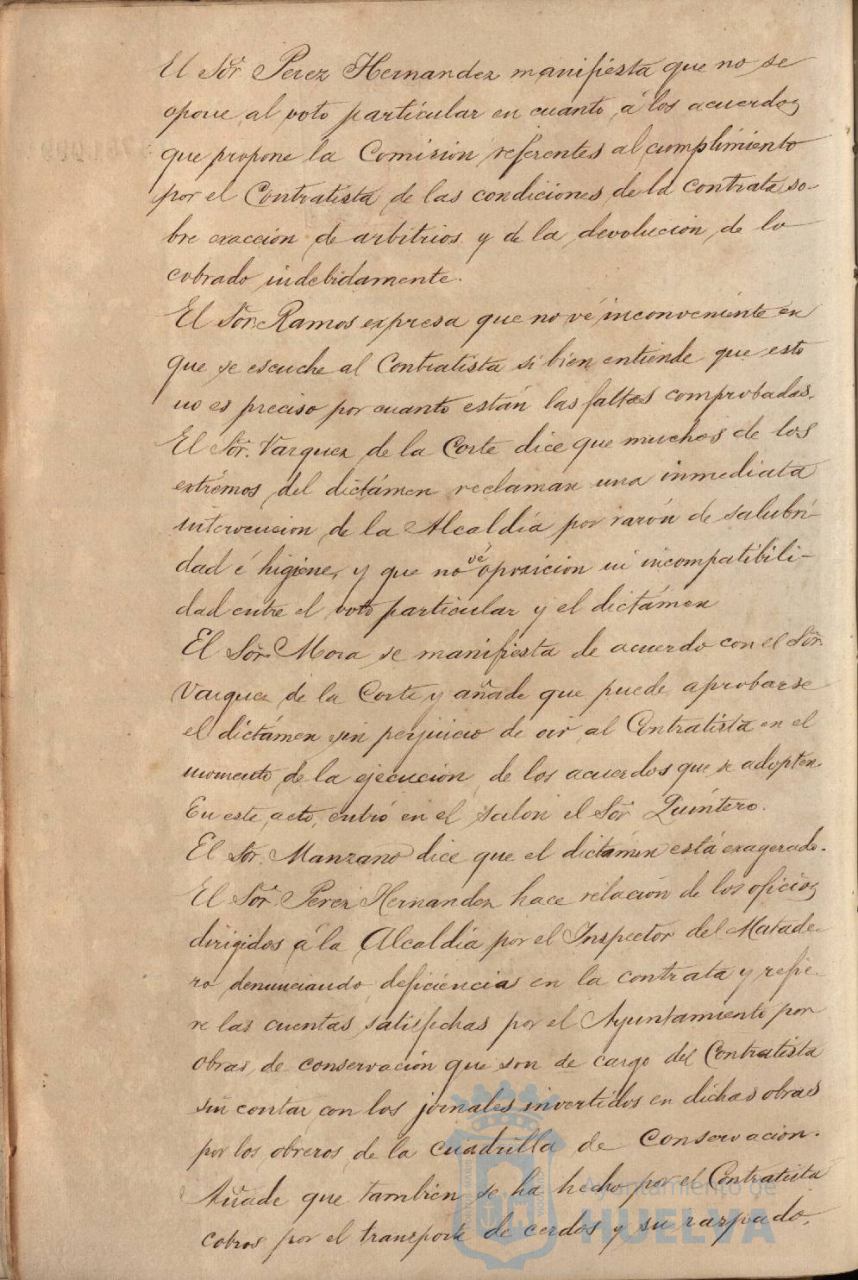 El Sor. Perez Hernandez manifiesta que no se
opone al voto particular en cuanto á los acuerdos
que propone la Comisión referentes al cumplimiento
por el Contratista de las condiciones de la contrata so-
bre exacción de arbitrios y de la devolución de lo
cobrado indebidamente.
El Sor. Ramos expresa que no vé inconveniente en
que se escuche al Contratista si bien entiende que esto
no es preciso por cuanto están las faltas comprobadas.
El Sor. Vazquez de la Corte dice que muchos de los
extrémos del dictámen reclaman una inmediata
intervencion de la Alcaldía por razón de salubri-
dad é higiene, y que no vé oposicion ni incompatibili-
dad entre el voto particular y el dictámen
El Sor. Mora se manifiesta de acuerdo con el Sor.
Vazquez de la Corte y añade que puede aprobarse
el dictámen sin perjuicio de oir al Contratista en el
momento de la ejecución de los acuerdos que se adopten.
En este acto entró en el salon el Sor. Quintero.
El Sor. Manzano dice que el dictámen está exagerado.
El Sor. Perez Hernandez hace relación de los oficios
dirigidos á la Alcaldía por el Inspector del Matade-
ro denunciando deficiencias en la contrata y refie-
re las cuentas satisfechas por el Ayuntamiento por
obras de conservación que son de cargo del Contratista
sin contar con los jornales invertidos en dichas obras
por los obreros de la cuadrilla de Conservacion.
Añade que tambien se ha hecho por el Contratista
cobros por el transporte de cerdos y su raspado.
Ayuntamiento de
HUELVA